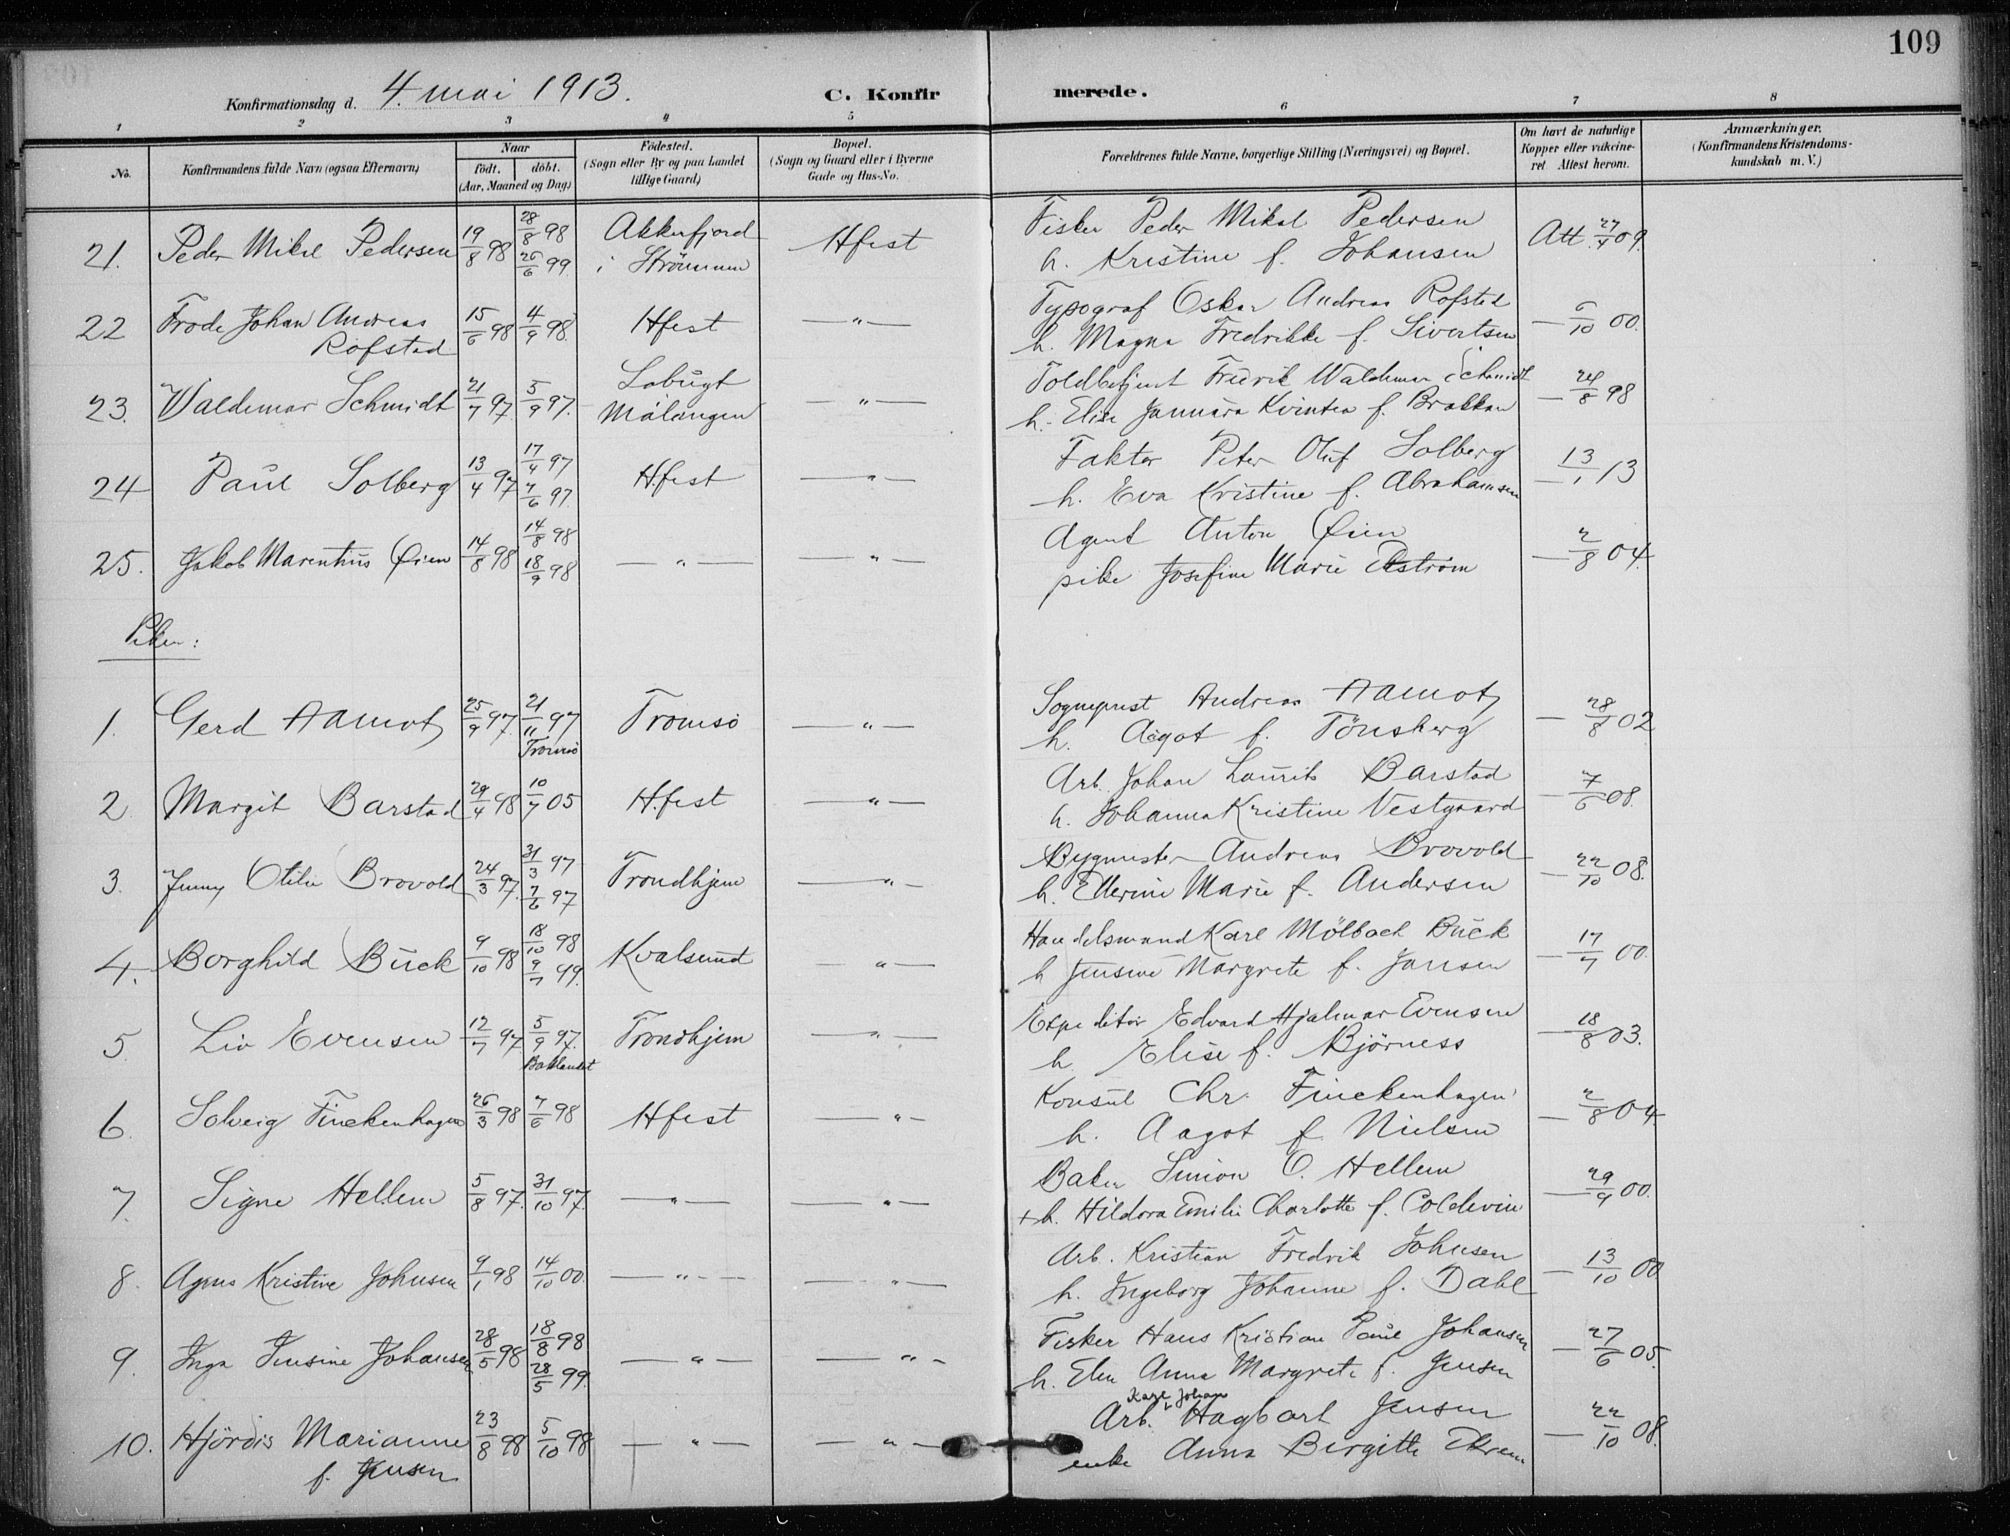 109
Konfirmationsdag d. 4. mai 1913.
C. Konfirmerede.
1 2 3 4 5 6 7 8
No.
Konfirmandens fulde Navn (ogsaa Efternavn)
Naar
født. døbt.
(Aar, Maaned og Dag)
Fødested.
(Sogn eller By og paa Landet
tillige Gaard)
Bopæl.
(Sogn og Gaard eller i Byerne
Gade og Hus-No.
Forældrenes fulde Navne, borgerlige Stilling (Næringsvei) og Bopæl.
Om havt de naturlige
Kopper eller vakcine-
ret Attest herom.
Anmærkninger.
(Konfirmandens Kristendoms-
kundskab m. V.)
21. Peder Mikal Pedersen 19/8 98 28/8 98 Akkarfjord Hfest Fisker Peder Mikal Pedersen Att 27/4 09.
26/6 99 i Strömmen h. Kristine f. Johansen
22 Frode Johan Andreas 15/6 98 4/9 98 Hfest —"— Typograf Oskar Andreas Rofstad — 6/10 00.
Rofstad h. Magna Fredrikke f. Sivertsen
23. Waldemar Schmidt 21/7 97 5/9 97. —"— Toldbetjent Fredrik Waldemar Schmidt — 24/8 98
Målangen h. Elise Januara f. Brakkan
24 Paul Solberg 13/4 97 17/4 97 Hfest —"— Faktor Peter Oluf Solberg — 13/1 13
7/6 97. h. Eva Kristine f. Abrahamsen
25. Jakob Marentius Øien 14/8 98 14/8 98 —"— —"— Agent Anton Øien — 2/8 04.
18/9 98 pike Josefine Marie
Piker:
1. Gerd Aamot 25/9 97. 21/11 97 Tromsö —"— Sogneprest Andreas Aamot — 28/8 02
Tromsö h. Aagot f. Tönsberg
2 Margit Barstad 29/4 98 10/7 05 Hfest —"— Arb. Johan Laurits Barstad — 7/6 08.
h. Johanna Kristine Vestgaard
3. Jenny Otilie Brovold 24/3 97. 31/3 97 Trondhjem —"— Bygmester Andreas Brovold — 22/10 08.
7/6 97 h. Ellerine Marie f. Andersen
4. Borghild Buck 9/10 98 18/10 98 Kvalsund —"— Handelsmand Karl Mölbach Buck — 17/7 00.
9/7 99. h Jensine Margrete f. Jansen
5 Liv Evensen 12/7 97 5/9 97. Trondhjem —"— Expeditör Edvard Hjalmar Evensen — 18/8 03.
Baklandet h. Elise f. Björness
6. Solveig Finckenhagen 26/3 98 7/6 98 Hfest —"— Konsul Chr. Finckenhagen — 2/8 04
h. Aagot f. Nielsen
7. Signe Hellem 5/8 97. 31/10 97. —"— —"— Baker Simon O. Hellem — 29/9 00.
+ h. Hildora Emilie Charlotte f. Coldevin
8. Agnes Kristine Johnsen 9/1 98 14/10 00. —"— —"— Arb. Kristian Fredrik Johnsen — 13/10 00
h. Ingeborg Johanne f. Dahl
9. Inga Jensine Johansen 28/5 98 18/8 98 —"— —"— Fisker Hans Kristian Paul Johansen — 27/6 05.
28/5 99. h. Elen Anna Margrete f. Jensen
Karl Johan
10. Hjördis Marianne 23/8 98 5/10 98 —"— —"— Arb. Hagbart Jensen — 22/10 08.
f. Jensen enke Anna Birgitte